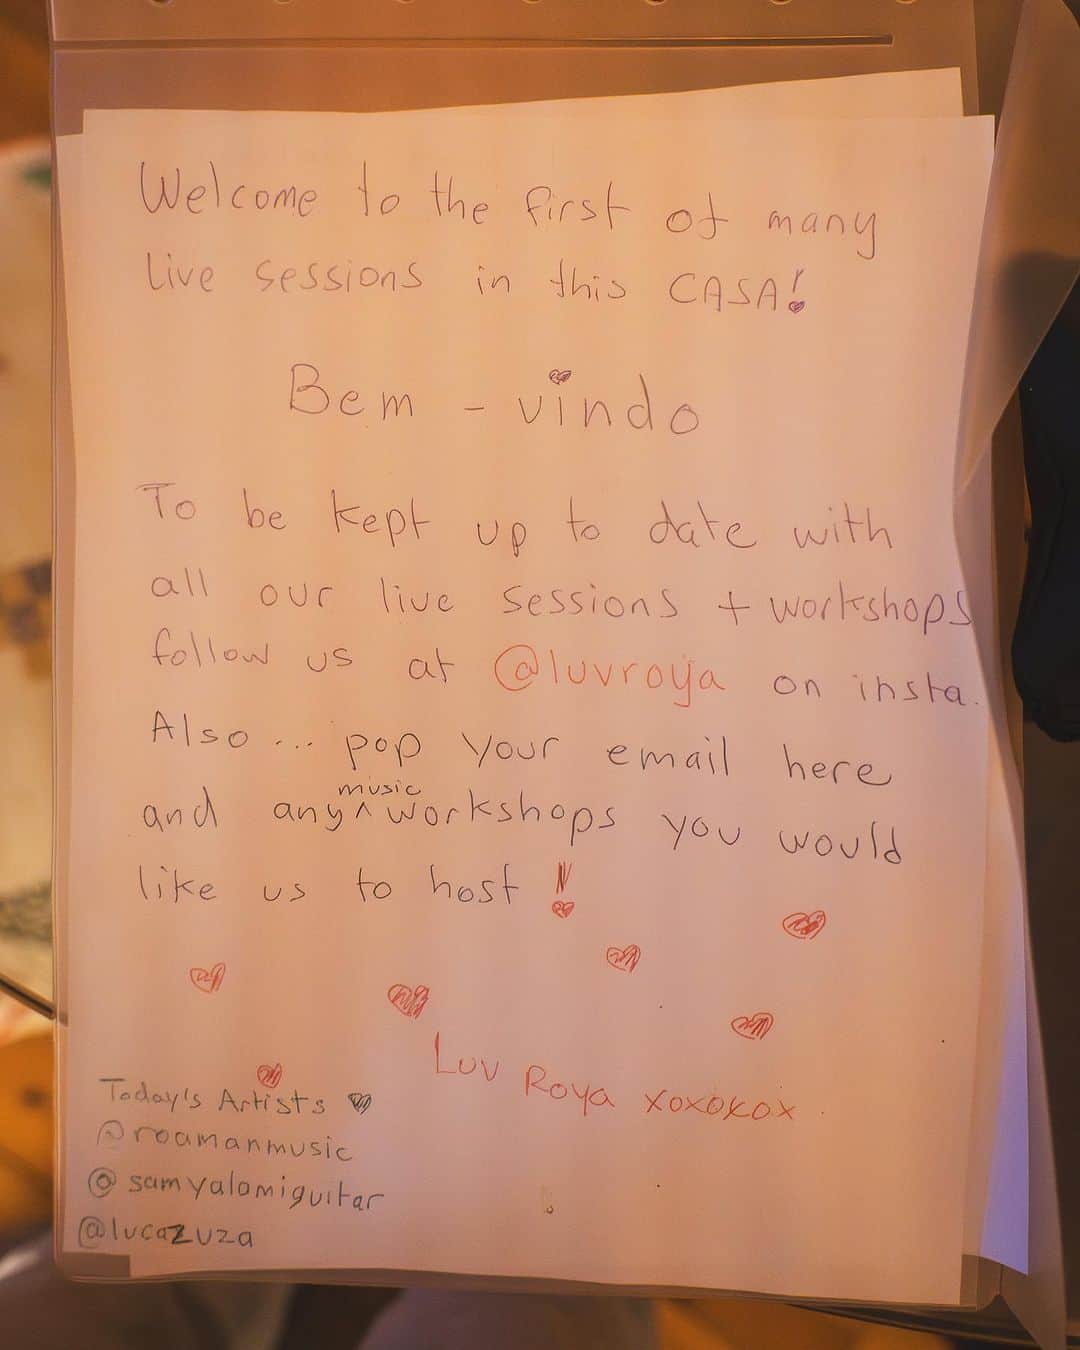 Welcome to the first of many
live sessions in this CASA!
Bem - vindo
To be kept up to date with
all our live sessions + workshops
follow us at @luvroya on insta.
Also ... pop your email here
music
and any ^ workshops you would
like us to host !
Luv Roya xoxoxox
Today's Artists
@roamanmusic
@samyalamiguitar
@lucazuza